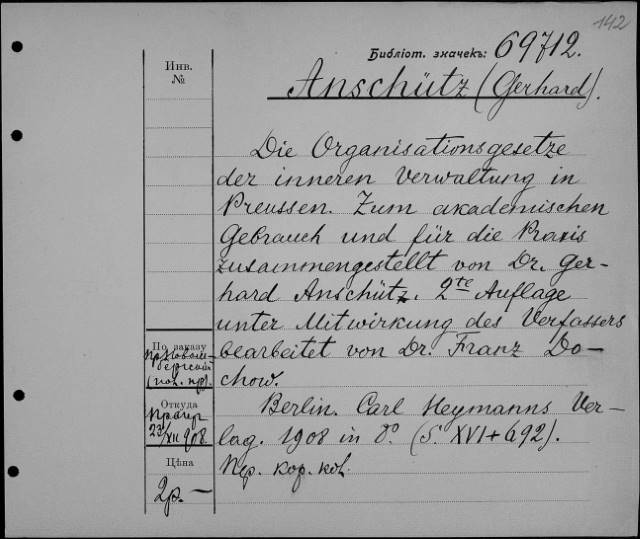 142
Библіот. значекъ: 69712.
Инв.
№
Anschütz (Gerhard).
Die Organisationsgesetze
der inneren Verwaltung in
Preussen. Zum akademischen
Gebrauch und für die Praxis
zusammengestellt von Dr. Ger-
hard Anschütz. 2te Auflage
unter Mitwirkung des Verfassers
bearbeitet von Dr. Franz Do-
chow.
Berlin. Carl Heymanns Ver-
lag. 1908 in 8º. (S. XVI+692).
Пер. кор. кол.
По заказу
Откуда
Прагер
23/XII 908.
Цѣна
2р. —